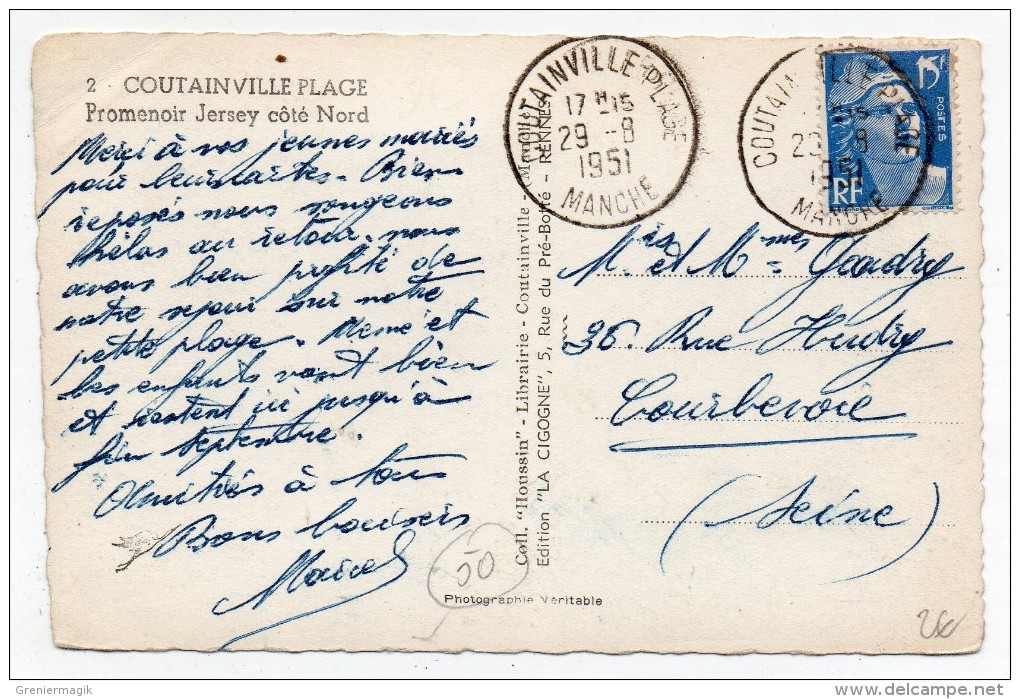 2 COUTAINVILLE PLAGE
Promenoir Jersey côté Nord
Merci à nos jeunes mariés
pour leurs cartes - Bien
reposés nous songeons
hélas au retour. nous
avons bien profité de
notre séjour sur notre
petite plage. Mémé et
les enfants vont bien
et restent ici jusqu'à
fin Septembre.
Amitiés à tous
Bons baisers
50
Photographie Véritable
Coll. "Houssin" - Librairie - Coutainville - Manche
Edition "LA CIGOGNE", 5, Rue du Pré-Botté - RENNES
COUTAINVILLE-PLAGE
17 H 15
29 -8
1951
MANCHE
COUTAINVILLE-PLAGE
29 -8
1951
MANCHE
15F
POSTES
RF
M. et Mmes Gaudry
36. Rue Hudry
Courbevoie
(Seine)
Greniermagik
www.delcampe.net